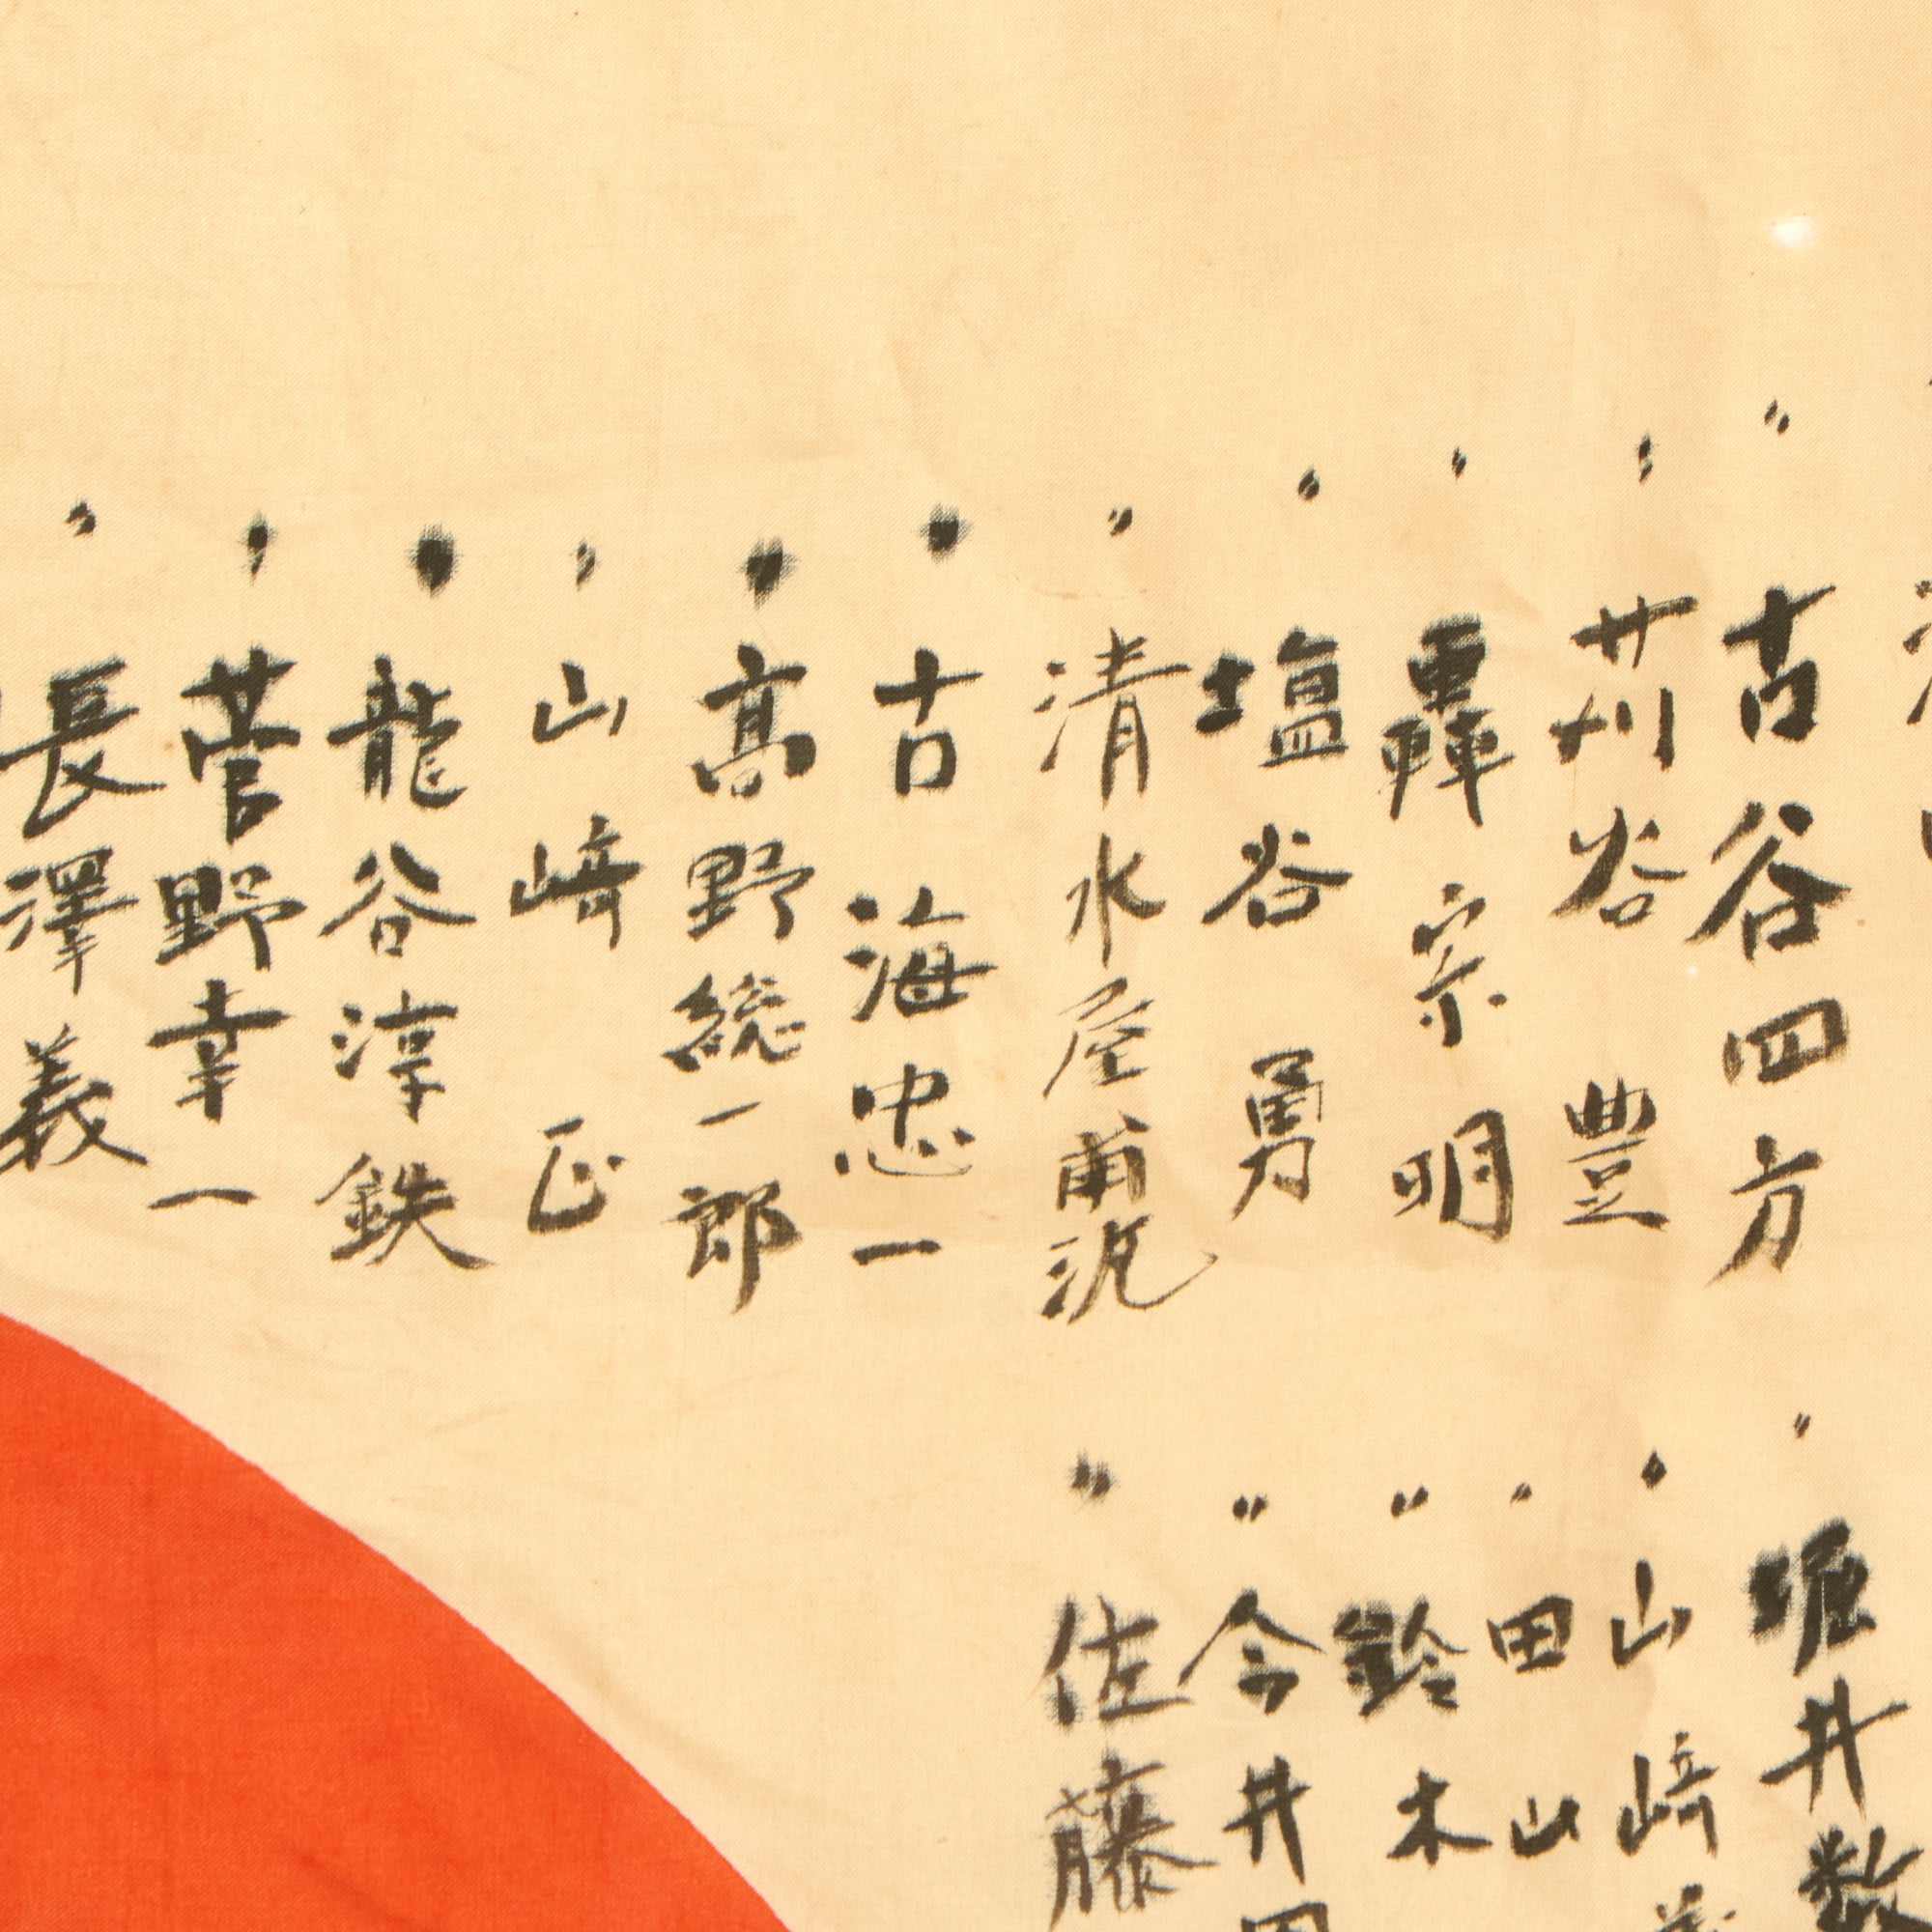 〃 古谷四方
〃 苅谷 豊
〃 轟 宗明
〃 塩谷 勇
〃 清水
〃 古海忠一
〃 高野総一郎
〃 山﨑 正
〃 龍谷淳鉄
〃 菅野幸一
〃 長澤義
〃 堀井数
〃 山﨑
〃 田山
〃 鈴木
〃 今井
〃 佐藤